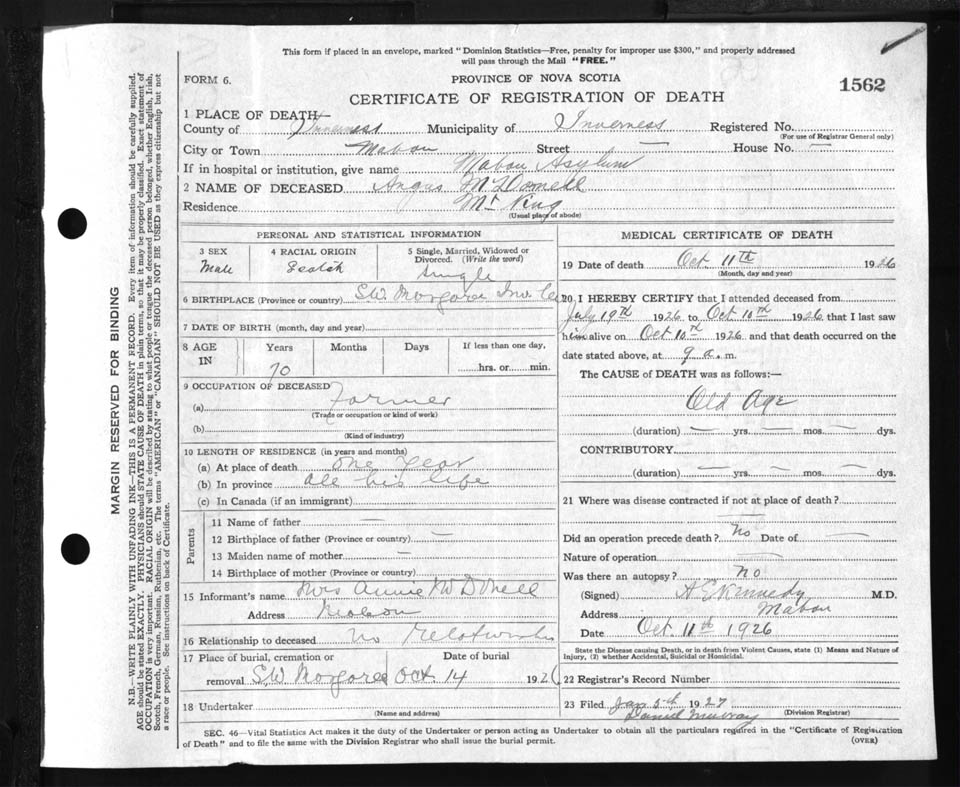 This form if placed in an envelope, marked "Dominion Statistics—Free, penalty for improper use $300," and properly addressed
will pass through the Mail "FREE."
FORM 6.
PROVINCE OF NOVA SCOTIA
1562
CERTIFICATE OF REGISTRATION OF DEATH
1 PLACE OF DEATH—
County of Inverness Municipality of Inverness Registered No.
(For use of Registrar General only)
City or Town Mabou Street — House No. —
If in hospital or institution, give name Mabou Asylum
2 NAME OF DECEASED Angus McDonnell
Residence Mt King
(Usual place of abode)
PERSONAL AND STATISTICAL INFORMATION
3 SEX 4 RACIAL ORIGIN 5 Single, Married, Widowed or
Divorced. (Write the word)
Male Scotch Single
6 BIRTHPLACE (Province or country) S.W. Margaree Inv Co
7 DATE OF BIRTH (month, day and year)
8 AGE IN Years Months Days If less than one day,
70 hrs. or min.
9 OCCUPATION OF DECEASED
(a) Farmer
(Trade or occupation or kind of work)
(b)
(Kind of industry)
10 LENGTH OF RESIDENCE (in years and months)
(a) At place of death one year
(b) In province all his life
(c) In Canada (if an immigrant)
Parents
11 Name of father —
12 Birthplace of father (Province or country) —
13 Maiden name of mother —
14 Birthplace of mother (Province or country)
15 Informant's name Mrs Annie
Address Mabou
16 Relationship to deceased no
17 Place of burial, cremation or Date of burial
removal S.W. Margaree Oct 14 1926
18 Undertaker
(Name and address)
MEDICAL CERTIFICATE OF DEATH
19 Date of death Oct. 11th 1926
(Month, day and year)
20 I HEREBY CERTIFY that I attended deceased from
July 19th 1926 to Oct 10th 1926 that I last saw
him alive on Oct 10th 1926 and that death occurred on the
date stated above, at 9 a. m.
The CAUSE of DEATH was as follows:—
Old Age
(duration) — yrs. — mos. — dys.
CONTRIBUTORY
(duration) — yrs. — mos. — dys.
21 Where was disease contracted if not at place of death?
Did an operation precede death? No Date of —
Nature of operation —
Was there an autopsy? no
(Signed) A E Kennedy M.D.
Address Mabou
Date Oct. 11th 1926
State the Disease causing Death, or in death from Violent Causes, state (1) Means and Nature of
Injury, (2) whether Accidental, Suicidal or Homicidal.
22 Registrar's Record Number
23 Filed Jan 5th 1927
Daniel Murray (Division Registrar)
SEC. 46—Vital Statistics Act makes it the duty of the Undertaker or person acting as Undertaker to obtain all the particulars required in the "Certificate of Registration
of Death" and to file the same with the Division Registrar who shall issue the burial permit.
(OVER)
MARGIN RESERVED FOR BINDING
N.B.—WRITE PLAINLY WITH UNFADING INK—THIS IS A PERMANENT RECORD. Every item of information should be carefully supplied.
AGE should be stated EXACTLY. PHYSICIANS should STATE CAUSE OF DEATH in plain terms, so that it may be properly classified. Exact statement of
OCCUPATION is very important. RACIAL ORIGIN will be described by stating to what people or tongue the deceased person belonged, whether English, Irish,
Scotch, French, German, Russian, Ruthenian, etc. The terms "AMERICAN" or "CANADIAN" SHOULD NOT BE USED as they express citizenship but not
a race or people. See instructions on back of Certificate.